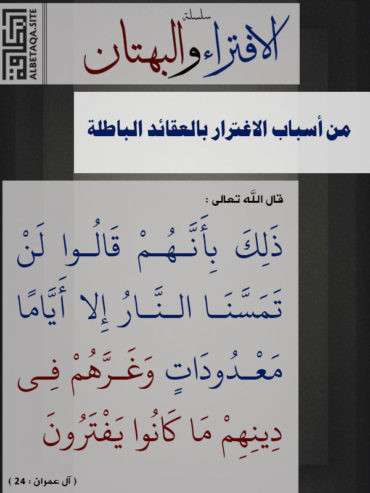 سلسلة
الافتراء والبهتان
ALBETAQA.SITE
من أسباب الاغترار بالعقائد الباطلة
قال الله تعالى :
ذَلِكَ بِأَنَّهُمْ قَالُوا لَنْ
تَمَسَّنَا النَّارُ إِلا أَيَّامًا
مَعْدُودَاتٍ وَغَرَّهُمْ فِي
دِينِهِمْ مَا كَانُوا يَفْتَرُونَ
( آل عمران : 24 )